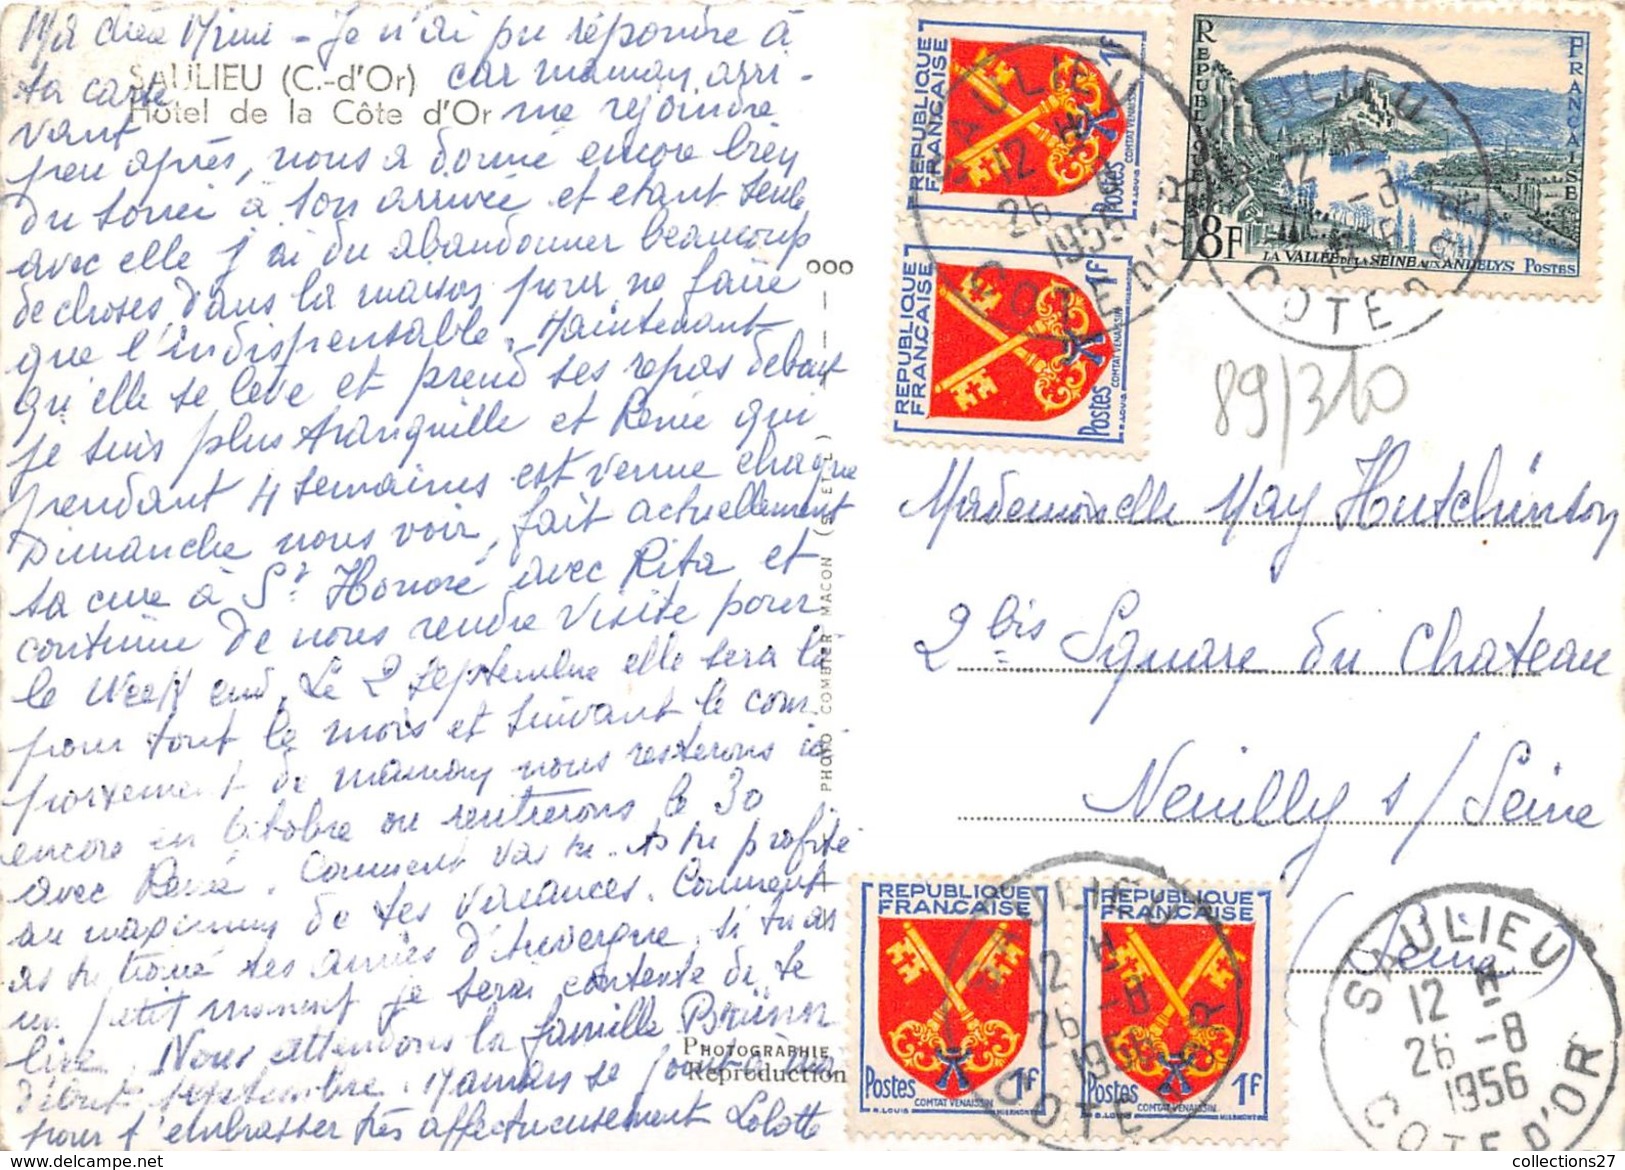 Ma chère Mimi - Je n'ai pu répondre à
ta carte car maman arri-
SAULIEU (C.-d'Or)
Hôtel de la Côte d'Or
vant me rejoindre
peu après, nous a donné encore bien
du souci à son arrivée et etant seule
avec elle j'ai du abandonner beaucoup
de choses dans la maison pour ne faire
que l'indispensable. Maintenant
qu'elle se lève et prend ses repas debout
je suis plus tranquille et Renée qui
pendant 4 semaines est venue chaque
Dimanche nous voir, fait actuellement
sa cure à St Honoré avec Rita et
continue de nous rendre visite pour
le Week end. Le 2 septembre elle sera là
pour tout le mois et suivant le com
portement de maman nous resterons ici
encore en Octobre ou rentrerons le 30
avec Renée. Comment vas tu. As tu profité
au maximum de tes vacances. Comment
as tu trouvé tes amies d'Auvergne, si tu as
un petit moment je serai contente de te
lire. Nous attendons la famille
début septembre. Maman se joint à moi
pour t'embrasser très affectueusement Lolotte
PHOTOGRAPHIE
Reproduction
PHOTO COMBIER MACON (S. ET L.)
RÉPUBLIQUE FRANÇAISE
1F
Postes
COMTAT VENAISSIN
RÉPUBLIQUE FRANÇAISE
1F
Postes
COMTAT VENAISSIN
REPUBLIQUE FRANÇAISE
8F
LA VALLÉE DE LA SEINE AUX ANDELYS POSTES
SAULIEU
12 H
26 -8
1956
COTE D'OR
89/310
Mademoiselle May Hutchinson
2 bis Square du Chateau
Neuilly s/Seine
(Seine)
REPUBLIQUE FRANÇAISE
Postes
1F
COMTAT VENAISSIN
REPUBLIQUE FRANÇAISE
Postes
1F
COMTAT VENAISSIN
SAULIEU
12 H
26 -8
1956
COTE D'OR
SAULIEU
12 H
26 -8
1956
COTE D'OR
collections27